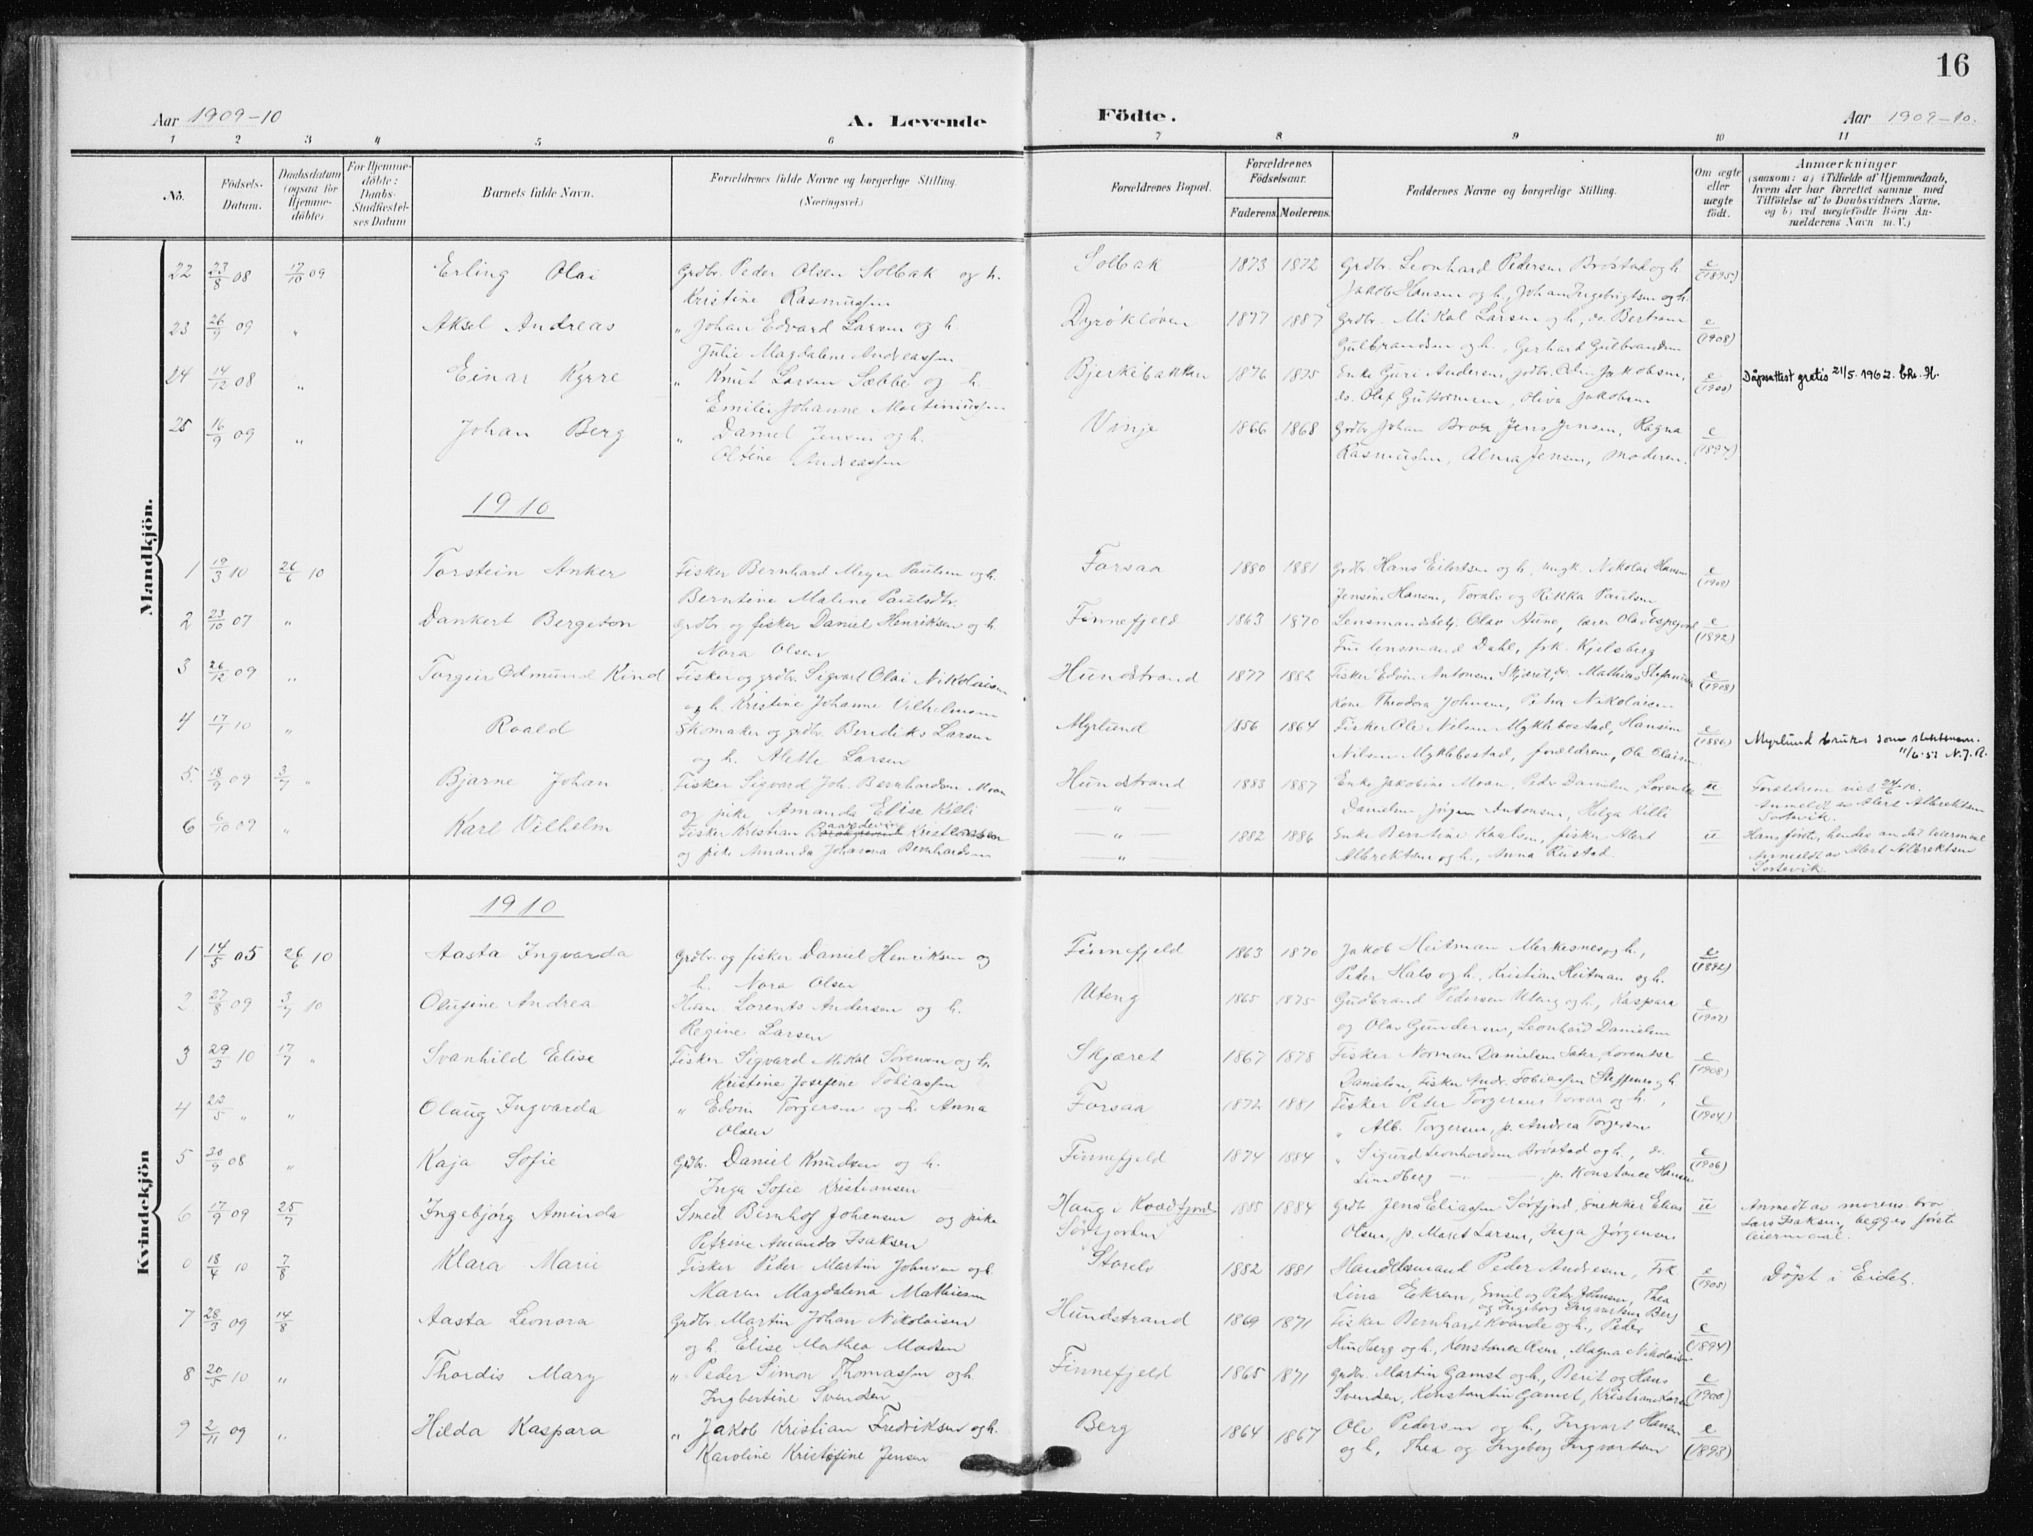 16
Aar 1909-10
A. Levende
Födte.
Aar 1909-10.
1 2 3 4 5 6 7 8 9 10 11
No.
Födsels-Datum.
Daabsdatum (ogsaa for Hjemme-döbte)
For Hjemme-döbte: Daabs-Stadfæstel-ses Datum
Barnets fulde Navn.
Forældrenes fulde Navne og borgerlige Stilling. (Næringsvei.)
Forældrenes Bopæl.
Forældrenes Födselsaar.
Faderens. Moderens.
Faddernes Navne og borgerlige Stilling.
Om ægte eller uægte födt.
Anmærkninger (saasom: a) i Tilfælde af Hjemmedaab, hvem der har forrettet samme, med Tilföielse af to Daabsvidners Navne, og b) ved uægtefödte Börn An-melderens Navn m.V.)
Mandkjön.
22 27/8 08 17/10 09 Erling Olai Grdbr. Peder Olsen Solbak og h. Solbak 1873 1872 Grdbr. Leonhard Pedersen Brøstad og h. e/(1895)
Kristine Rasmussen Jakob Hansen og h., Johan Ingebrigtsen og h.
23 26/9 09 " Aksel Andreas " Johan Edvard Larsen og h. Dyrøkløven 1877 1887 Grdbr. Mikal Larsen og h., do. Bertram e/(1908)
Julie Magdalene Andreassen Gulbrandsen og h., Gerhard Gulbrandsen
24 14/12 08 " Einar Kyrre " Knut Larsen Sæbbe og h. Bjerkebakken 1876 1875 Enke Guri Andersen, grdbr. Olin Jakobsen, e/(1900) Dåpsattest gratis 21/5.1962. Chr. H.
Emilie Johanne Martinussen do. Olaf Guttormsen, Oliva Jakobsen
25 16/9 09 " Johan Berg " Daniel Jensen og h. Vinje 1866 1868 Grdbr. Johan Brox, Jens Jensen, Ragna e/(1894)
Oltine Andreassen Rasmussen, Alma Jensen, moderen.
1910
1 19/3 10 26/6 10 Torstein Anker Fisker Bernhard Meyer Paulsen og h. Forsaa 1880 1881 Grdbr. Hans Eilertsen og h., ungk. Nikolai Hansen e/(1909)
Berntine Maline Paulsdtr. Jensine Hansen, Toralv og Rikka Paulsen
2 23/10 07 " Dankert Bergeton Grdbr. og fisker Daniel Henriksen og h. Finnefjeld 1863 1870 Lensmandsbetj. Olav Aune, lærer Olav Espejord e/(1892)
Nora Olsen Fru lensmand Dahl, frk. Kjelsberg
3 26/12 09 " Torgeir Odmund Kind Fisker og grdbr. Sigvart Olai Nikolaisen Hundstrand 1877 1882 Fisker Edvin Antonsen Skjæret, do. Mathias Stefanisen e/(1908)
og h. Kristine Johanne Vilhelmsen Kone Theodora Johnsen, Petra Nikolaisen
4 17/1 10 " Roald Skomaker og grdbr. Bendiks Larsen Myrlund 1856 1864 Fisker Ole Nilsen Myklebostad, Hansine e/(1886) Myrlund brukes som slektsnavn.
og h. Alette Larsen Nilsen Myklebostad, forældrene, Ole Olaisen 11/6-51 N.J.R.
5 18/9 09 3/7 " Bjarne Johan Fisker Sigvard Joh. Bernhardsen Moan Hundstrand 1883 1887 Enke Jakobine Moan, Peder Danielsen, Lorentse u Forældrene viet 24/6-10.
og pike Amanda Elise Killi — " — Danielsen, Jørgen Antonsen, Helga Killi Anmeldt av Alert Albrektsen Sortevik.
6 6/10 09 " Karl Vilhelm Fisker Kristian Kristiansen — " — 1882 1886 Enke Berntine Knutsen, fisker Alert u Hans første, hendes andet leiermaal
og pike Amanda Johanna Bernhardsen — " — Albrektsen og h., Anna Rustad. Anmeldt av Alert Albrektsen Sortevik.
Kvindekjön
1910
1 14/5 05 26/6 10 Aasta Ingvarda Grdbr. og fisker Daniel Henriksen og Finnefjeld 1863 1870 Jakob Heitman Merkesnes og h., e/(1892)
h. Nora Olsen Peder Hals og h., Kristian Heitman og h.
2 27/8 09 3/7 10 Olufine Andrea Husm. Lorents Andersen og h. Uteng 1865 1875 Gudbrand Pedersen Uteng og h., Kaspara e/(1907)
Regine Larsen og Olav Gundersen, Leonhard Danielsen
3 29/3 10 17/7 " Svanhild Elise Fisker Sigvard Mikal Sørensen og h. Skjæret 1867 1878 Fisker Norman Danielsen Sæter, Lorentse e/(1908)
Kristine Josefine Tobiassen Danielsen, Fisker Andr. Tobiassen Steffenes og h
4 23/5 " " Olaug Ingvarda " Edvin Torgersen og h. Anna Forsaa 1872 1881 Fisker Peter Torgersen Forsaa og h., e/(1904)
Olsen " Alb. Torgersen, p. Andrea Torgersen
5 20/9 08 " Kaja Sofie Grdbr. Daniel Knudsen og h. Finnefjeld 1874 1884 " Sigurd Leonhardsen Brøstad og h., do. e/(1906)
Inga Sofie Kristiansen Lindberg — " — p. Konstance Hansen
6 17/9 09 25/7 Ingebjörg Aminda Smed Bernhof Johansen og pike Haug i Kvædfjord 1885 1884 Grdbr. Jens Eliassen Sørfjord, snekker Elias u Anmeldt av morens bror
Petrine Amanda Isaksen Sørfjorden Olsen, p. Marit Larsen, Inga Jørgensen Lars Isaksen, begges første leiermaal.
0 18/4 10 7/8 Klara Marie Fisker Peder Martin Johnsen og h. Storelv 1882 1881 Handelsmand Peder Andresen, Frk. e/(1905) Døpt i Eidet.
Maren Magdalena Mathisen Lina Ekren, Emil og Petr. Johnsen, Thea og Ingeborg Ingvartsen Berg
7 28/3 09 14/8 Aasta Leonora Grdbr. Martin Johan Nikolaisen Hundstrand 1869 1871 Fisker Bernhard Kvande og h., Peder e/(1894)
og h. Elise Mathea Madsen Hundberg og h., Konstance Olsen, Magna Nikolaisen
8 20/5 10 " Thordis Mary " Peder Simon Thomassen og h. Finnefjeld 1865 1871 Grdbr. Martin Gamst og h., Berit og Hans e/(1900)
Ingbertine Svendsen Svendsen, Konstantin Gamst, Kristiane
9 2/11 09 " Hilda Kaspara " Jakob Kristian Fredriksen og h. Berg 1864 1867 Ole Pedersen og h., Ingvart Hansen e/(1893)
Karoline Kristofine Jensen og h, Thea og Ingeborg Ingvartsen